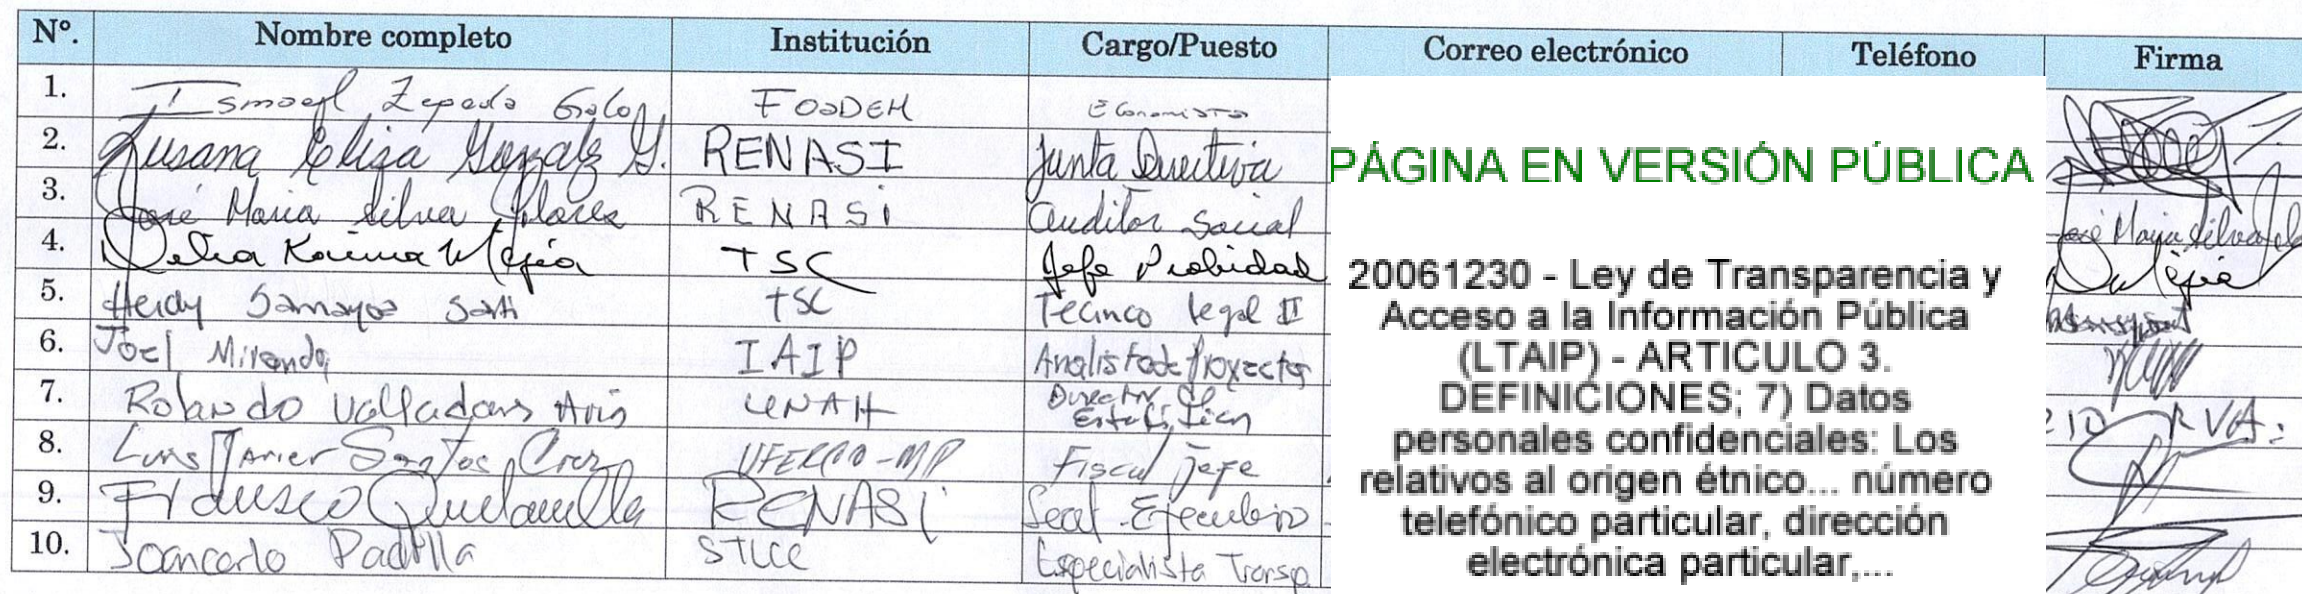 Nº. Nombre completo Institución Cargo/Puesto Correo electrónico Teléfono Firma
1. Ismael Zepeda Galo FOSDEH Economista
2. Susana Eliza Gonzalz G. RENASI Junta Directiva
3. José Maria Silva Flores RENASI auditor Social José Maria Silva
4. Delia Karina Mejia TSC Jefe Probidad
5. Heidy Samayoa TSC Tecnico legal II
6. Joel Miranda IAIP Analista de Proyectos
7. Rolando Valladares UNAH Director de
8. Luis Javier Santos Cruz UFERCO-MP Fiscal Jefe
9. RENASI Ejecutivo
10. Joancarlo Padilla STLCC Especialista Transp
PÁGINA EN VERSIÓN PÚBLICA
20061230 - Ley de Transparencia y
Acceso a la Información Pública
(LTAIP) - ARTICULO 3.
DEFINICIONES; 7) Datos
personales confidenciales: Los
relativos al origen étnico... número
telefónico particular, dirección
electrónica particular,...